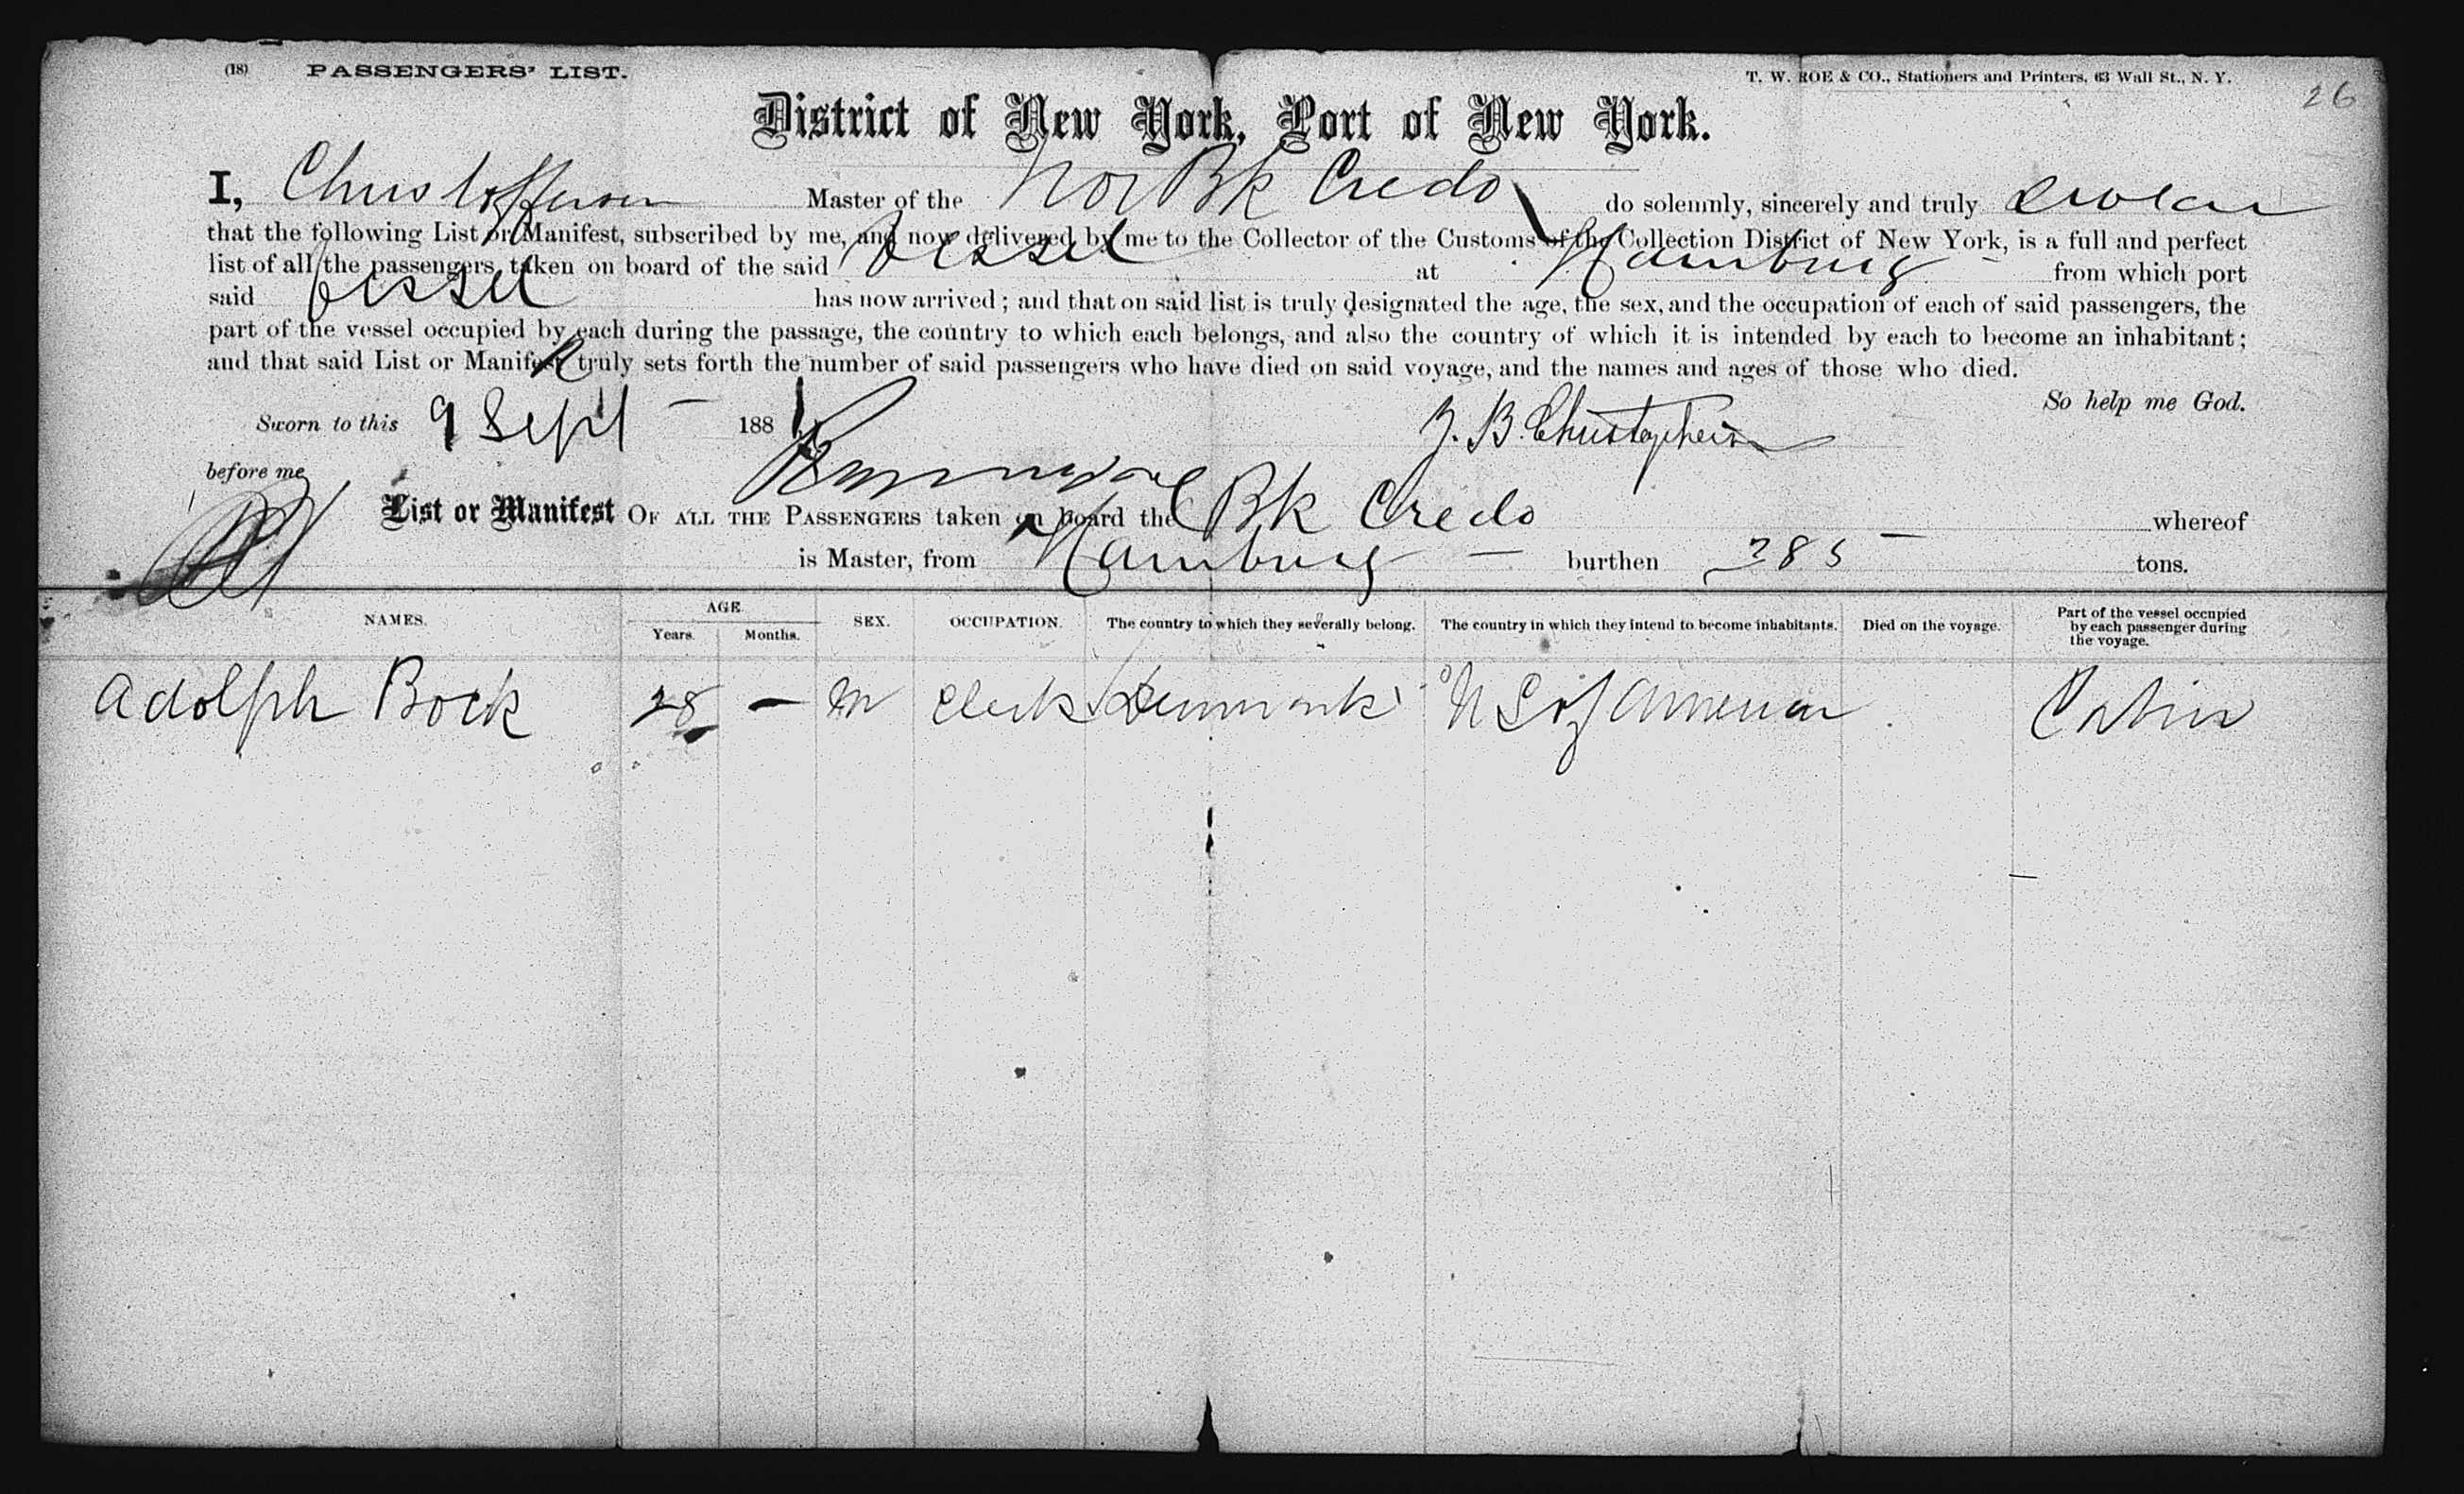 (18) PASSENGERS' LIST. T. W. ROE & CO., Stationers and Printers, 63 Wall St., N. Y. 26
District of New York, Port of New York.
I, Christoffersen Master of the Nor Bk Credo do solemnly, sincerely and truly swear
that the following List or Manifest, subscribed by me, and now delivered by me to the Collector of the Customs of the Collection District of New York, is a full and perfect
list of all the passengers taken on board of the said Vessel at Hamburg from which port
said Vessel has now arrived; and that on said list is truly designated the age, the sex, and the occupation of each of said passengers, the
part of the vessel occupied by each during the passage, the country to which each belongs, and also the country of which it is intended by each to become an inhabitant;
and that said List or Manifest truly sets forth the number of said passengers who have died on said voyage, and the names and ages of those who died.
So help me God.
Sworn to this 9 Sept 1881
before me
List or Manifest OF ALL THE PASSENGERS taken on board the Bk Credo whereof
is Master, from Hamburg burthen 385 tons.
NAMES. AGE. SEX. OCCUPATION. The country to which they severally belong. The country in which they intend to become inhabitants. Died on the voyage. Part of the vessel occupied by each passenger during the voyage.
Years. Months.
Adolph Bock 28 - M Clerk Denmark U S of America Cabin